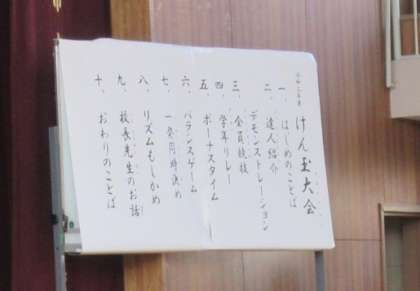 けん玉大会
一、はじめのことば
二、達人紹介
デモンストレーション
三、全員競技
四、学年リレー
五、ボーナスタイム
六、バランスゲーム
七、一発円月決め
八、リズムもしかめ
九、校長先生のお話
十、おわりのことば